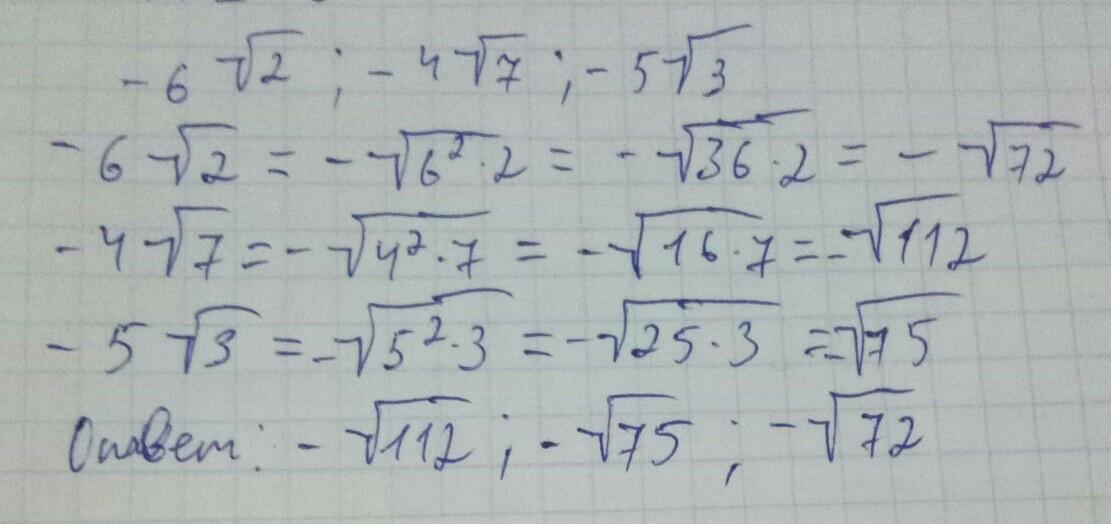 -6√2 ; -4√7 ; -5√3
-6√2 = -√6²·2 = -√36·2 = -√72
-4√7 = -√4²·7 = -√16·7 = -√112
-5√3 = -√5²·3 = -√25·3 = -√75
Ответ: -√112 ; -√75 ; -√72